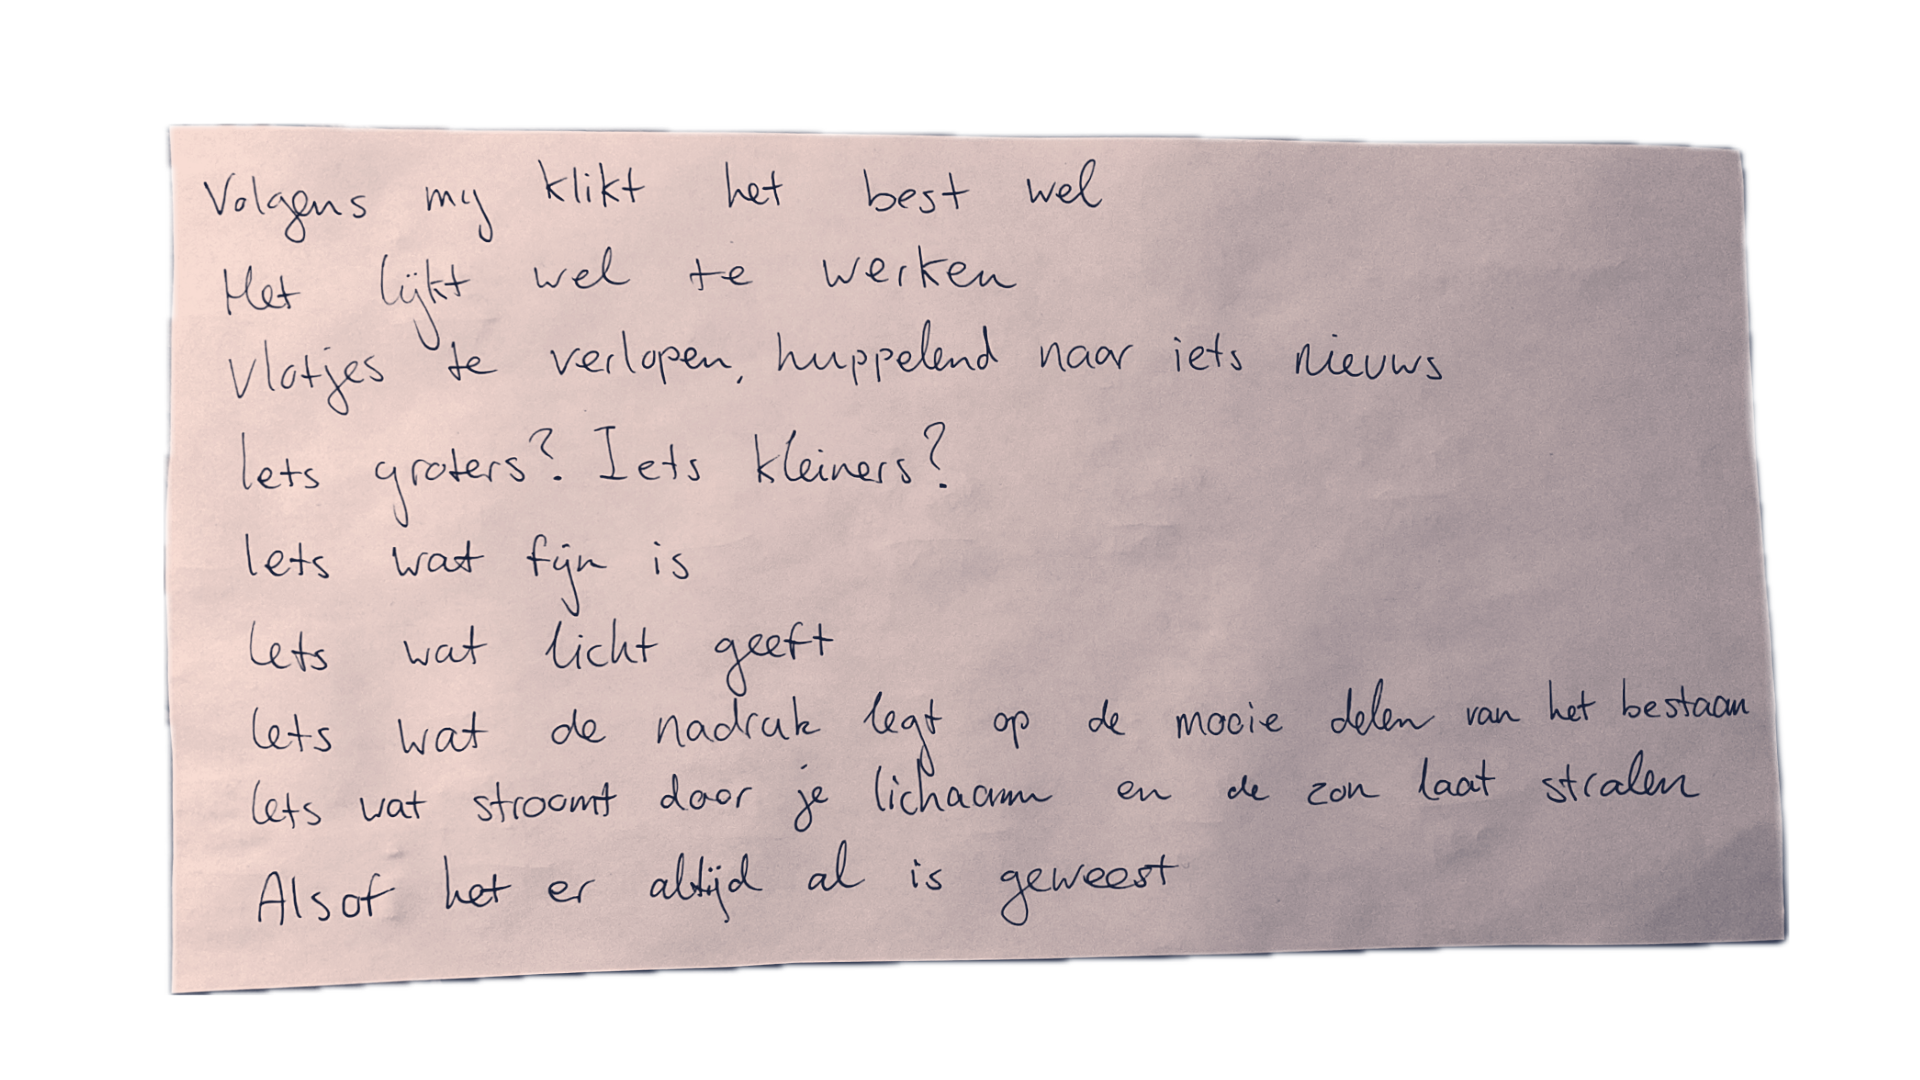 Volgens mij klikt het best wel
Het lijkt wel te werken
Vlotjes te verlopen, huppelend naar iets nieuws
Iets groters? Iets kleiners?
Iets wat fijn is
Iets wat licht geeft
Iets wat de nadruk legt op de mooie delen van het bestaan
Iets wat stroomt door je lichaam en de zon laat stralen
Alsof het er altijd al is geweest